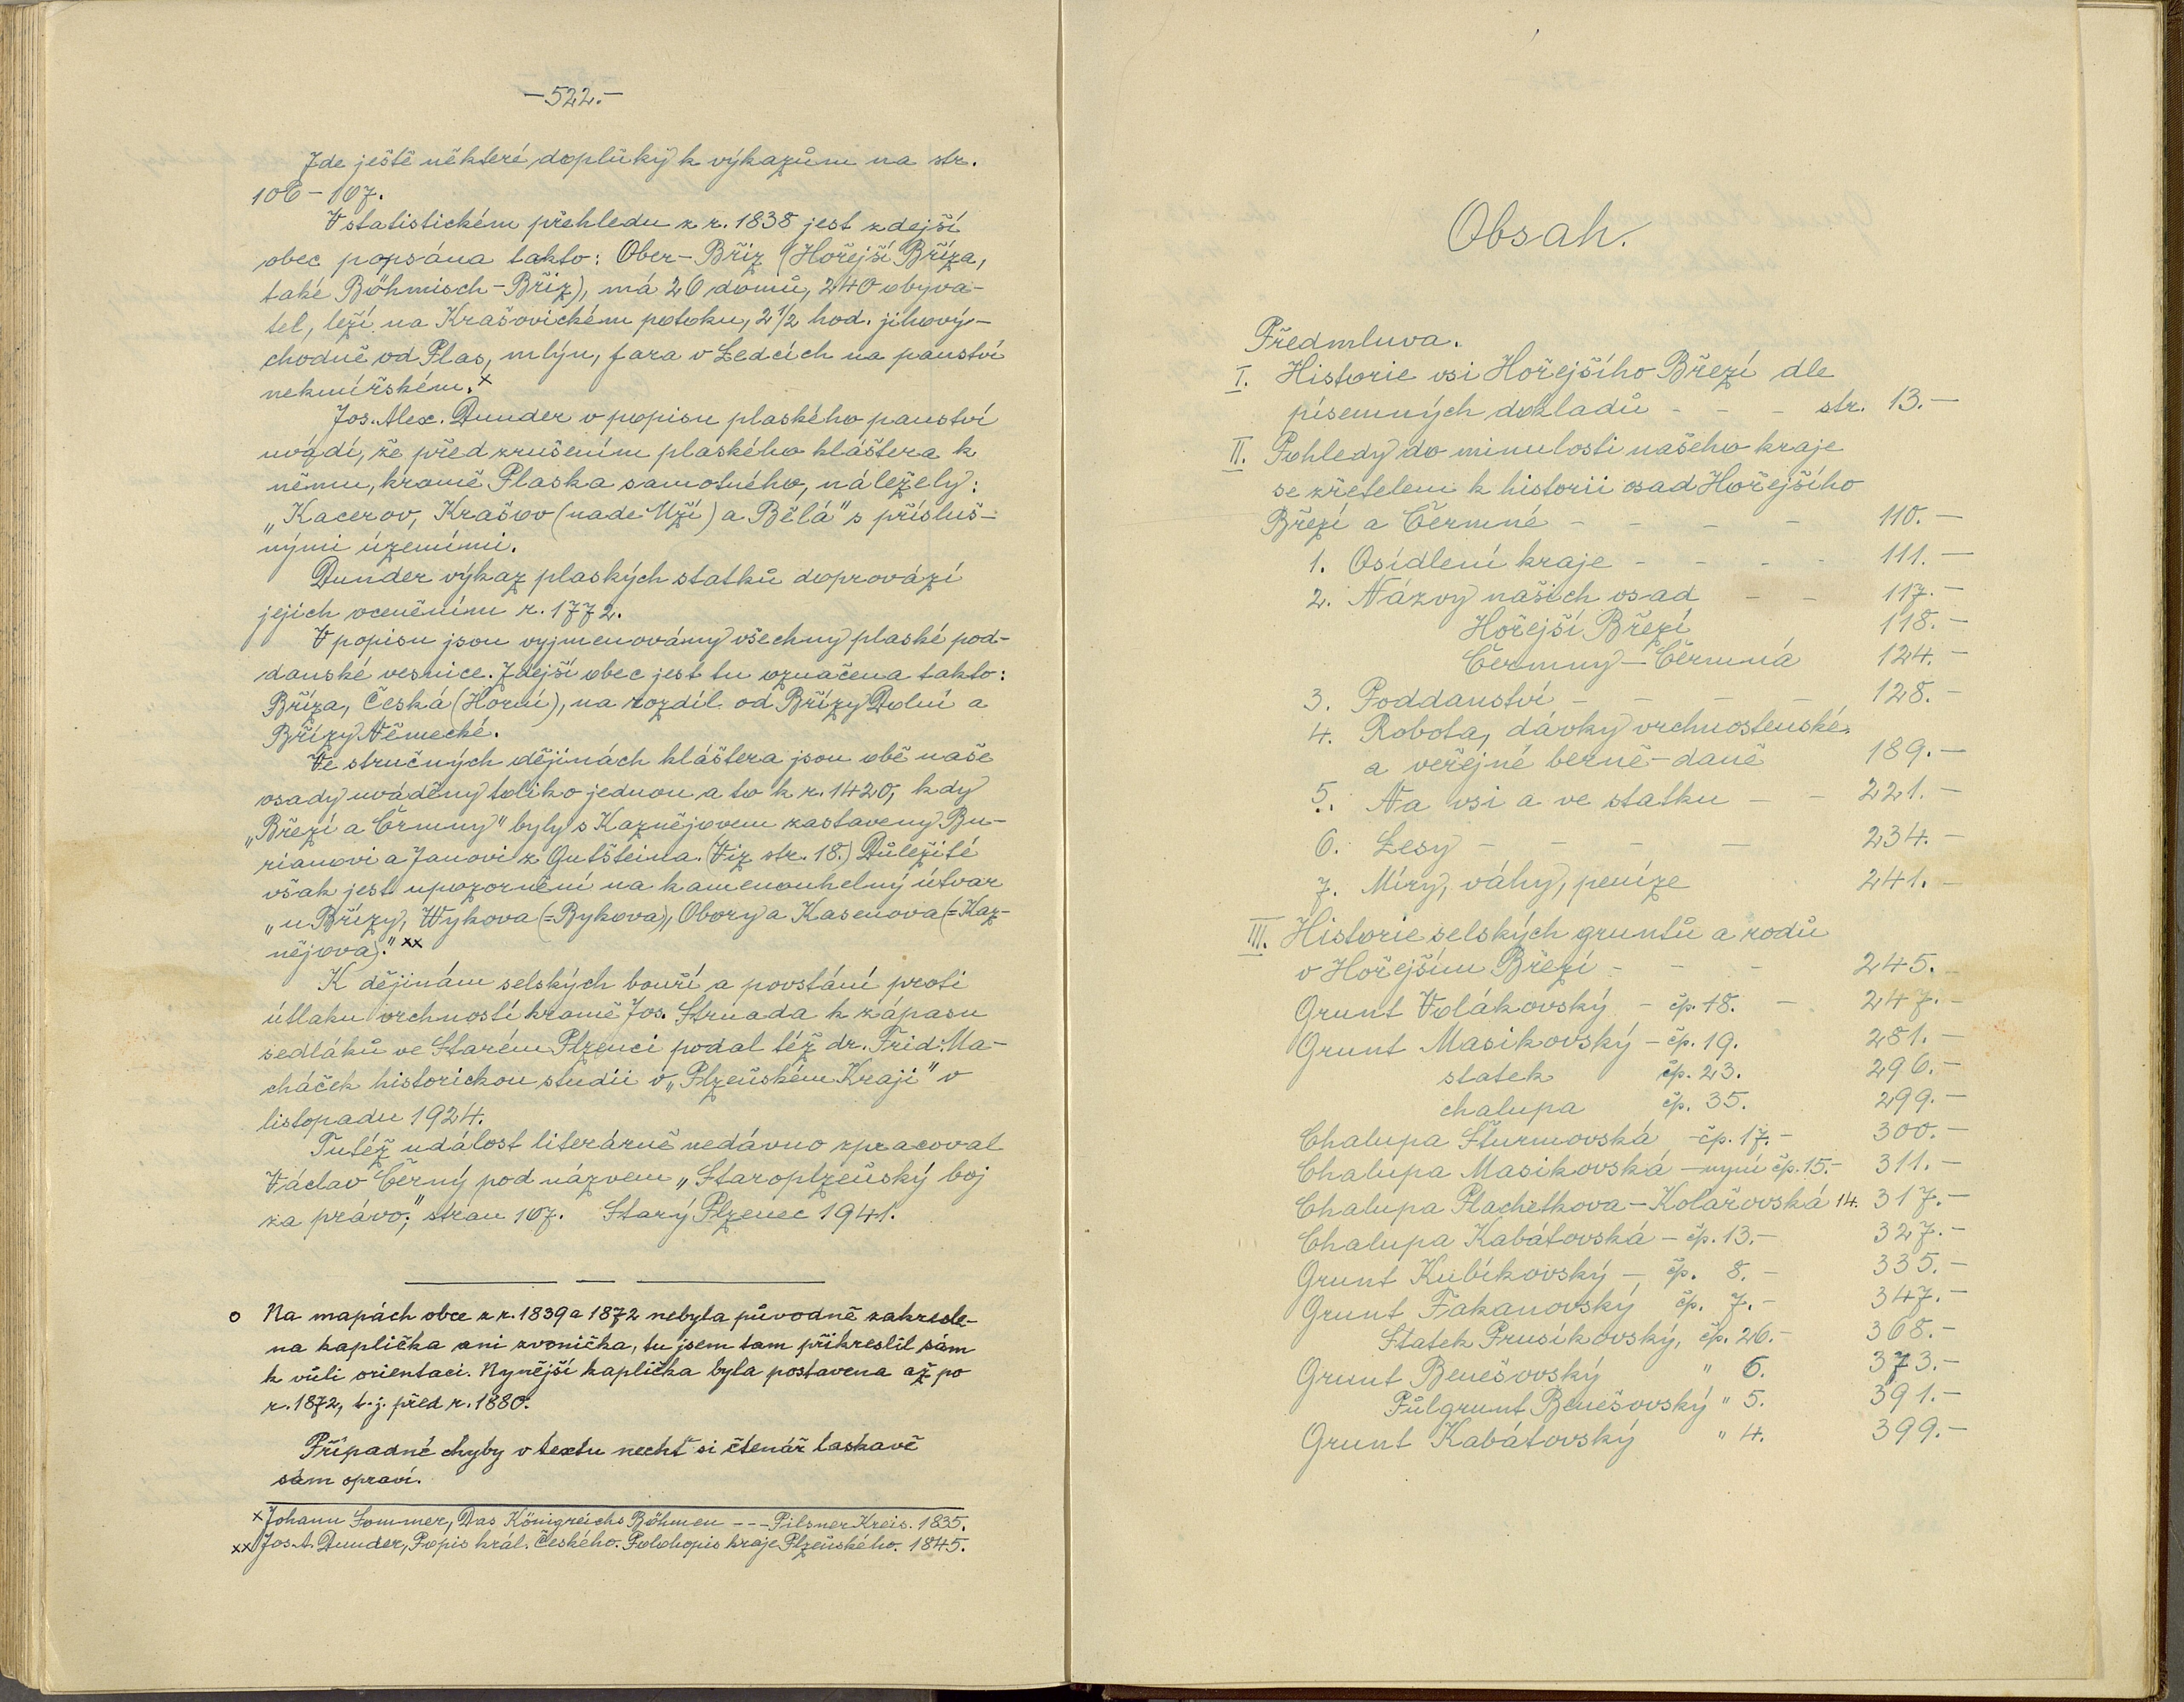 —522.—
Zde ještě některé doplňky k výkazům na str.
106–107.
V statistickém přehledu z r. 1838 jest zdejší
obec popsána takto: Ober-Břiz (Hořejší Bříza,
také Böhmisch-Břiz), má 26 domů, 240 obyva-
tel, leží na Krašovickém potoku, 2 1/2 hod. jihový-
chodně od Plas, mlýn, fara v Ledcích na panství
nekmířském.x
Jos. Alex. Dunder v popisu plaského panství
uvádí, že před zrušením plaského kláštera k
němu, kromě Plaska samotného, náležely:
„Kacerov, Krašov (nade Mží) a Bělá" s přísluš-
nými územími.
Dunder výkaz plaských statků doprovází
jejich oceněním r. 1772.
V popisu jsou vyjmenovámy všechny plaské pod-
danské vesnice. Zdejší obec jest tu označena takto:
Bříza, Česká (Horní), na rozdíl od Břízy Dolní a
Břízy Německé.
Ve stručných dějinách kláštera jsou obě naše
osady uváděny toliko jednou a to k r. 1420, kdy
„Březí a Črmny" byly s Kaznějovem zastaveny Bu-
rianovi a Janovi z Gutšteina. (Viz str. 18.) Důležité
však jest upozornění na kamenouhelný útvar
„u Břízy, Wykova (=Bykova), Obory a Kasenova (=Kaz-
nějova)." xx
K dějinám selských bouří a povstání proti
útlaku vrchností kromě Jos. Strnada k zápasu
sedláků ve Starém Plzenci podal též dr. Frid. Ma-
cháček historickou studii v „Plzeňském Kraji" v
listopadu 1924.
Tutéž událost literárně nedávno zpracoval
Václav Černý pod názvem „Staroplzeňský boj
za právo", stran 107. Starý Plzenec 1941.
o Na mapách obce z r. 1839 a 1872 nebyla původně zakresle-
na kaplička ani zvonička, tu jsem tam přikreslil sám
k vůli orientaci. Nynější kaplička byla postavena až po
r. 1872, t. j. před r. 1880.
Případné chyby v textu nechť si čtenář laskavě
sám opraví.
x Johann Sommer, Das Königreichs Böhmen --- Pilsner Kreis. 1835.
xx Jos. A. Dunder, Popis král. Českého. Polohopis kraje Plzeňského. 1845.
Obsah.
Předmluva.
I. Historie vsi Hořejšího Březí dle
písemných dokladů - - - str. 13.—
II. Pohledy do minulosti našeho kraje
se zřetelem k historii osad Hořejšího
Březí a Čermné - - - - 110.—
1. Osídlení kraje - - - - 111.—
2. Názvy našich osad - - 117.—
Hořejší Březí 118.—
Čermny — Čermná 124.—
3. Poddanství - - - - 128.—
4. Robota, dávky vrchnostenské
a veřejné berně-daně 189.—
5. Na vsi a ve statku - - 221.—
6. Lesy - - - - 234.—
7. Míry, váhy, peníze 241.—
III. Historie selských gruntů a rodů
v Hořejším Březí - - - 245.—
Grunt Volákovský - čp. 18. - 247.—
Grunt Masikovský - čp. 19. 281.—
statek čp. 23. 296.—
chalupa čp. 35. 299.—
Chalupa Šturmovská - čp. 17. - 300.—
Chalupa Masikovská - nyní čp. 15. - 311.—
Chalupa Plachetkova - Kolářovská 14. 317.—
Chalupa Kabátovská - čp. 13. - 327.—
Grunt Kubíkovský - čp. 8. - 335.—
Grunt Fakanovský čp. 7. - 347.—
Statek Prusíkovský, čp. 26. - 368.—
Grunt Benešovský " 6. 373.—
Půlgrunt Benešovský " 5. 391.—
Grunt Kabátovský " 4. 399.—